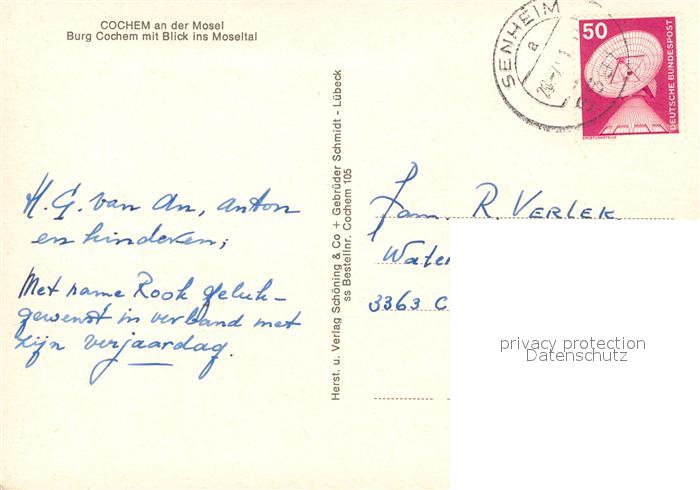 COCHEM an der Mosel
Burg Cochem mit Blick ins Moseltal
SENHEIM
a
50
DEUTSCHE BUNDESPOST
ERDEFUNKSTELLE
H. G. van An, anton
en kinderen,
Met name Rook geluk-
gewenst in verband met
zijn verjaardag.
Herst. u. Verlag Schöning & Co + Gebrüder Schmidt - Lübeck
ss Bestellnr. Cochem 105
Fam. R. VERLEK.
Water
3363 C
privacy protection
Datenschutz